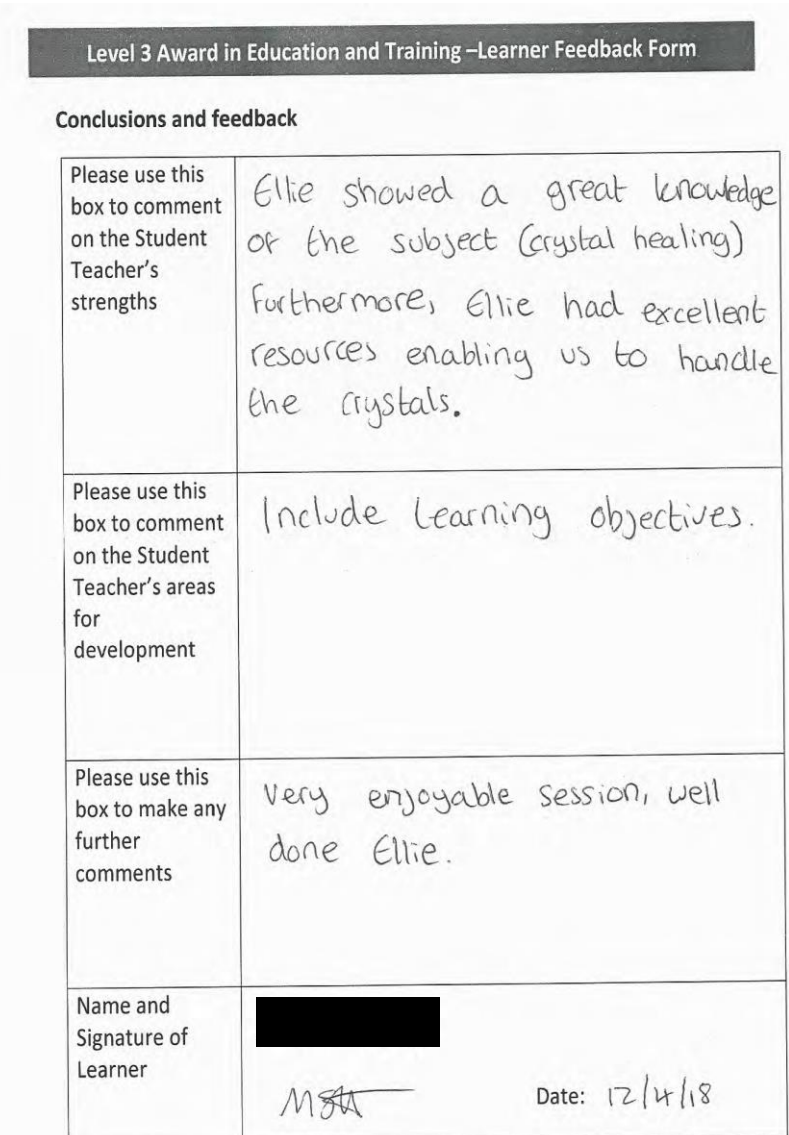 Level 3 Award in Education and Training –Learner Feedback Form
Conclusions and feedback
Please use this
box to comment
on the Student
Teacher's
strengths
Ellie showed a great knowledge
of the subject (crystal healing)
Furthermore, Ellie had excellent
resources enabling us to handle
the crystals.
Please use this
box to comment
on the Student
Teacher's areas
for
development
Include learning objectives.
Please use this
box to make any
further
comments
Very enjoyable session, well
done Ellie.
Name and
Signature of
Learner
Date: 12/4/18